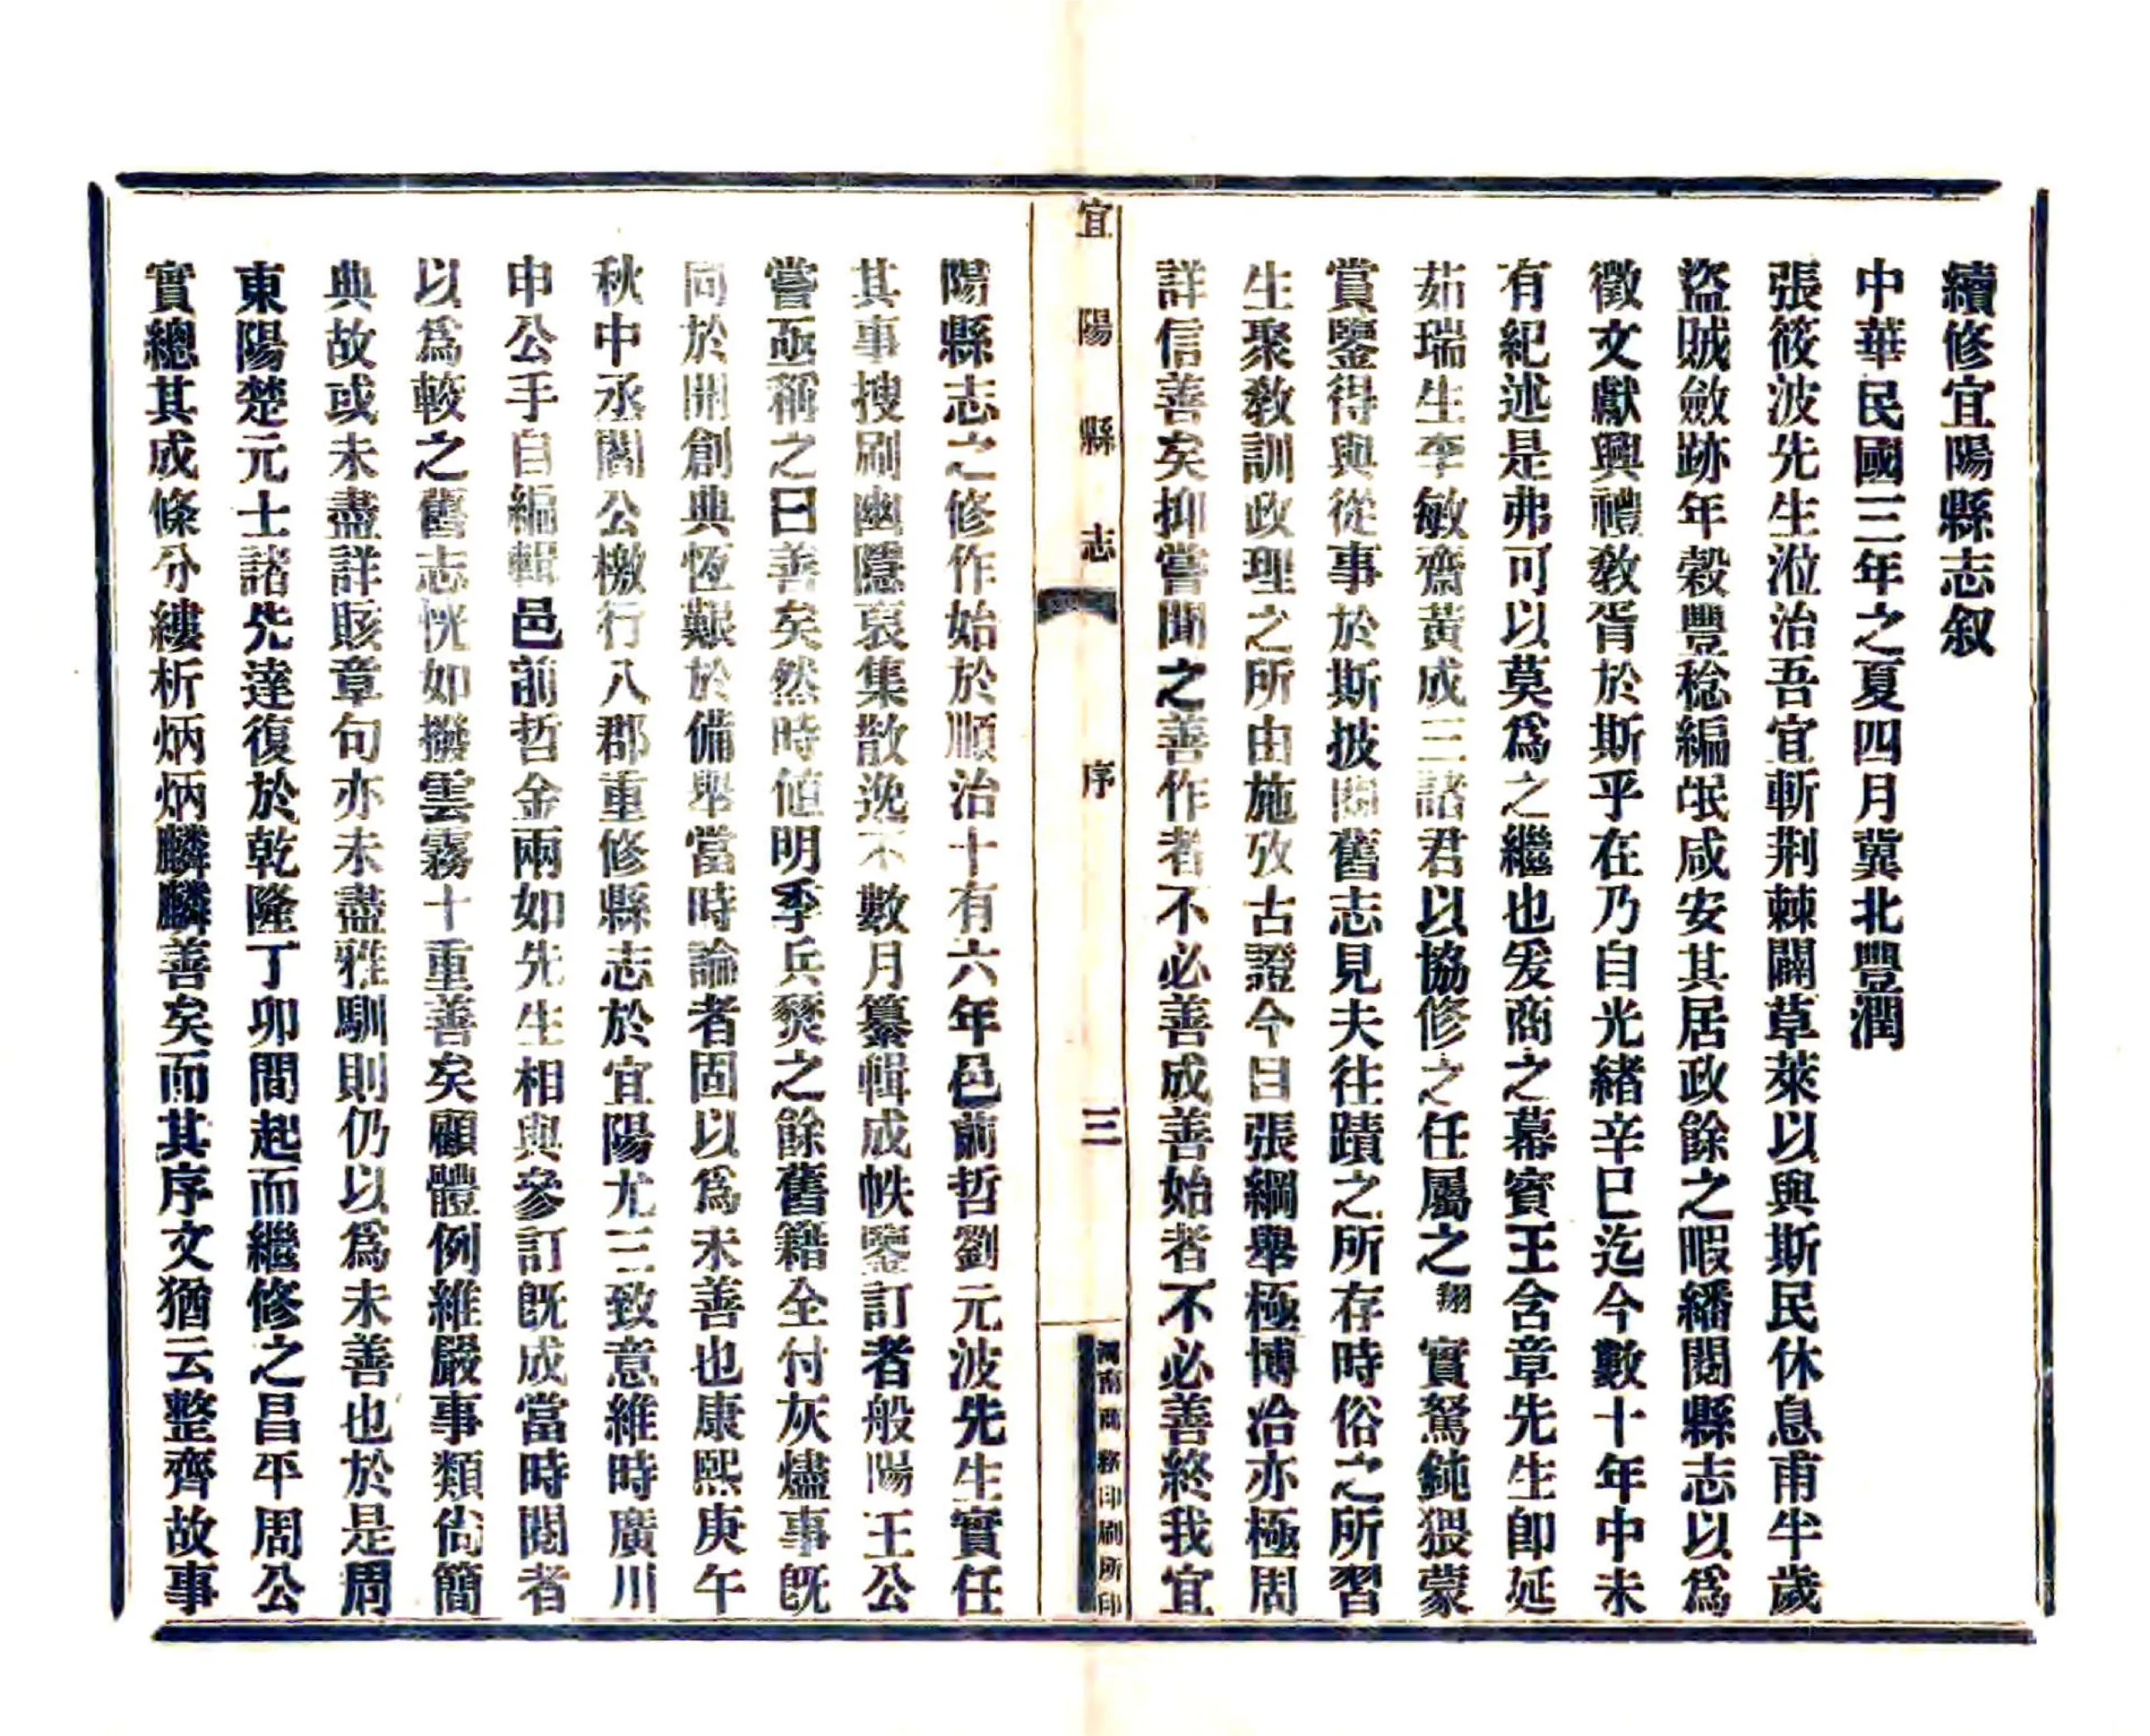 續修宜陽縣志叙
中華民國三年之夏四月冀北豐潤
張筱波先生涖治吾宜斬荆棘闢草萊以與斯民休息甫半歲
盜賊斂跡年穀豐稔編氓咸安其居政餘之暇繙閱縣志以爲
徵文獻興禮敎胥於斯乎在乃自光緒辛巳迄今數十年中未
有紀述是弗可以莫爲之繼也爰商之幕賓王含章先生卽延
茹瑞生李敏齋黃成三諸君以協修之任屬之翔實駑鈍猥蒙
賞鑒得與從事於斯披閱舊志見夫往蹟之所存時俗之所習
生聚敎訓政理之所由施攷古證今目張綱舉極博洽亦極周
詳信善矣抑嘗聞之善作者不必善成善始者不必善終我宜
宜陽縣志 序 三 河南商務印刷所印
陽縣志之修作始於順治十有六年邑前哲劉元波先生實任
其事搜剔幽隱裒集散逸不數月纂輯成帙鑒訂者般陽王公
嘗亟稱之曰善矣然時値明季兵燹之餘舊籍全付灰燼事旣
同於開創典恆艱於備舉當時論者固以爲未善也康熙庚午
秋中丞閻公檄行八郡重修縣志於宜陽尤三致意維時廣川
申公手自編輯邑前哲金兩如先生相與參訂旣成當時閱者
以爲較之舊志恍如撥雲霧十重善矣顧體例維嚴事類尙簡
典故或未盡詳賅章句亦未盡雅馴則仍以爲未善也於是周
東陽楚元士諸先達復於乾隆丁卯間起而繼修之昌平周公
實總其成條分縷析炳炳麟麟善矣而其序文猶云整齊故事